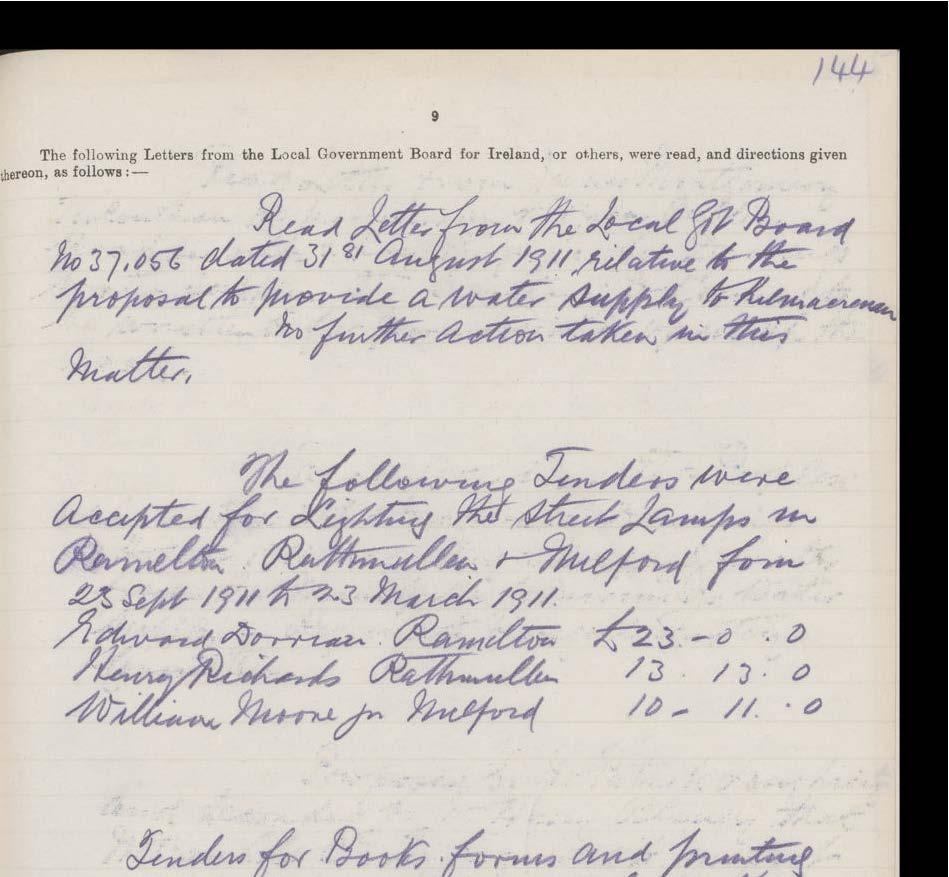 144
9
The following Letters from the Local Government Board for Ireland, or others, were read, and directions given
thereon, as follows:—
Read Letter from the Local Gvt Board
No 37,056 dated 31st August 1911 relative to the
proposal to provide a water supply to Kilmacrenan
No further action taken in this
Matter.
The following Tenders were
Accepted for Lighting the Street Lamps in
Ramelton. Rathmullen & Milford from
23 Sept 1911 to 23 March 1911.
Edward Dorrian. Ramelton £23.-0.0
Henry Richards Rathmullen 13. 13. 0
William Moore jr Milford 10- 11. .0
Tenders for Books. forms and printing